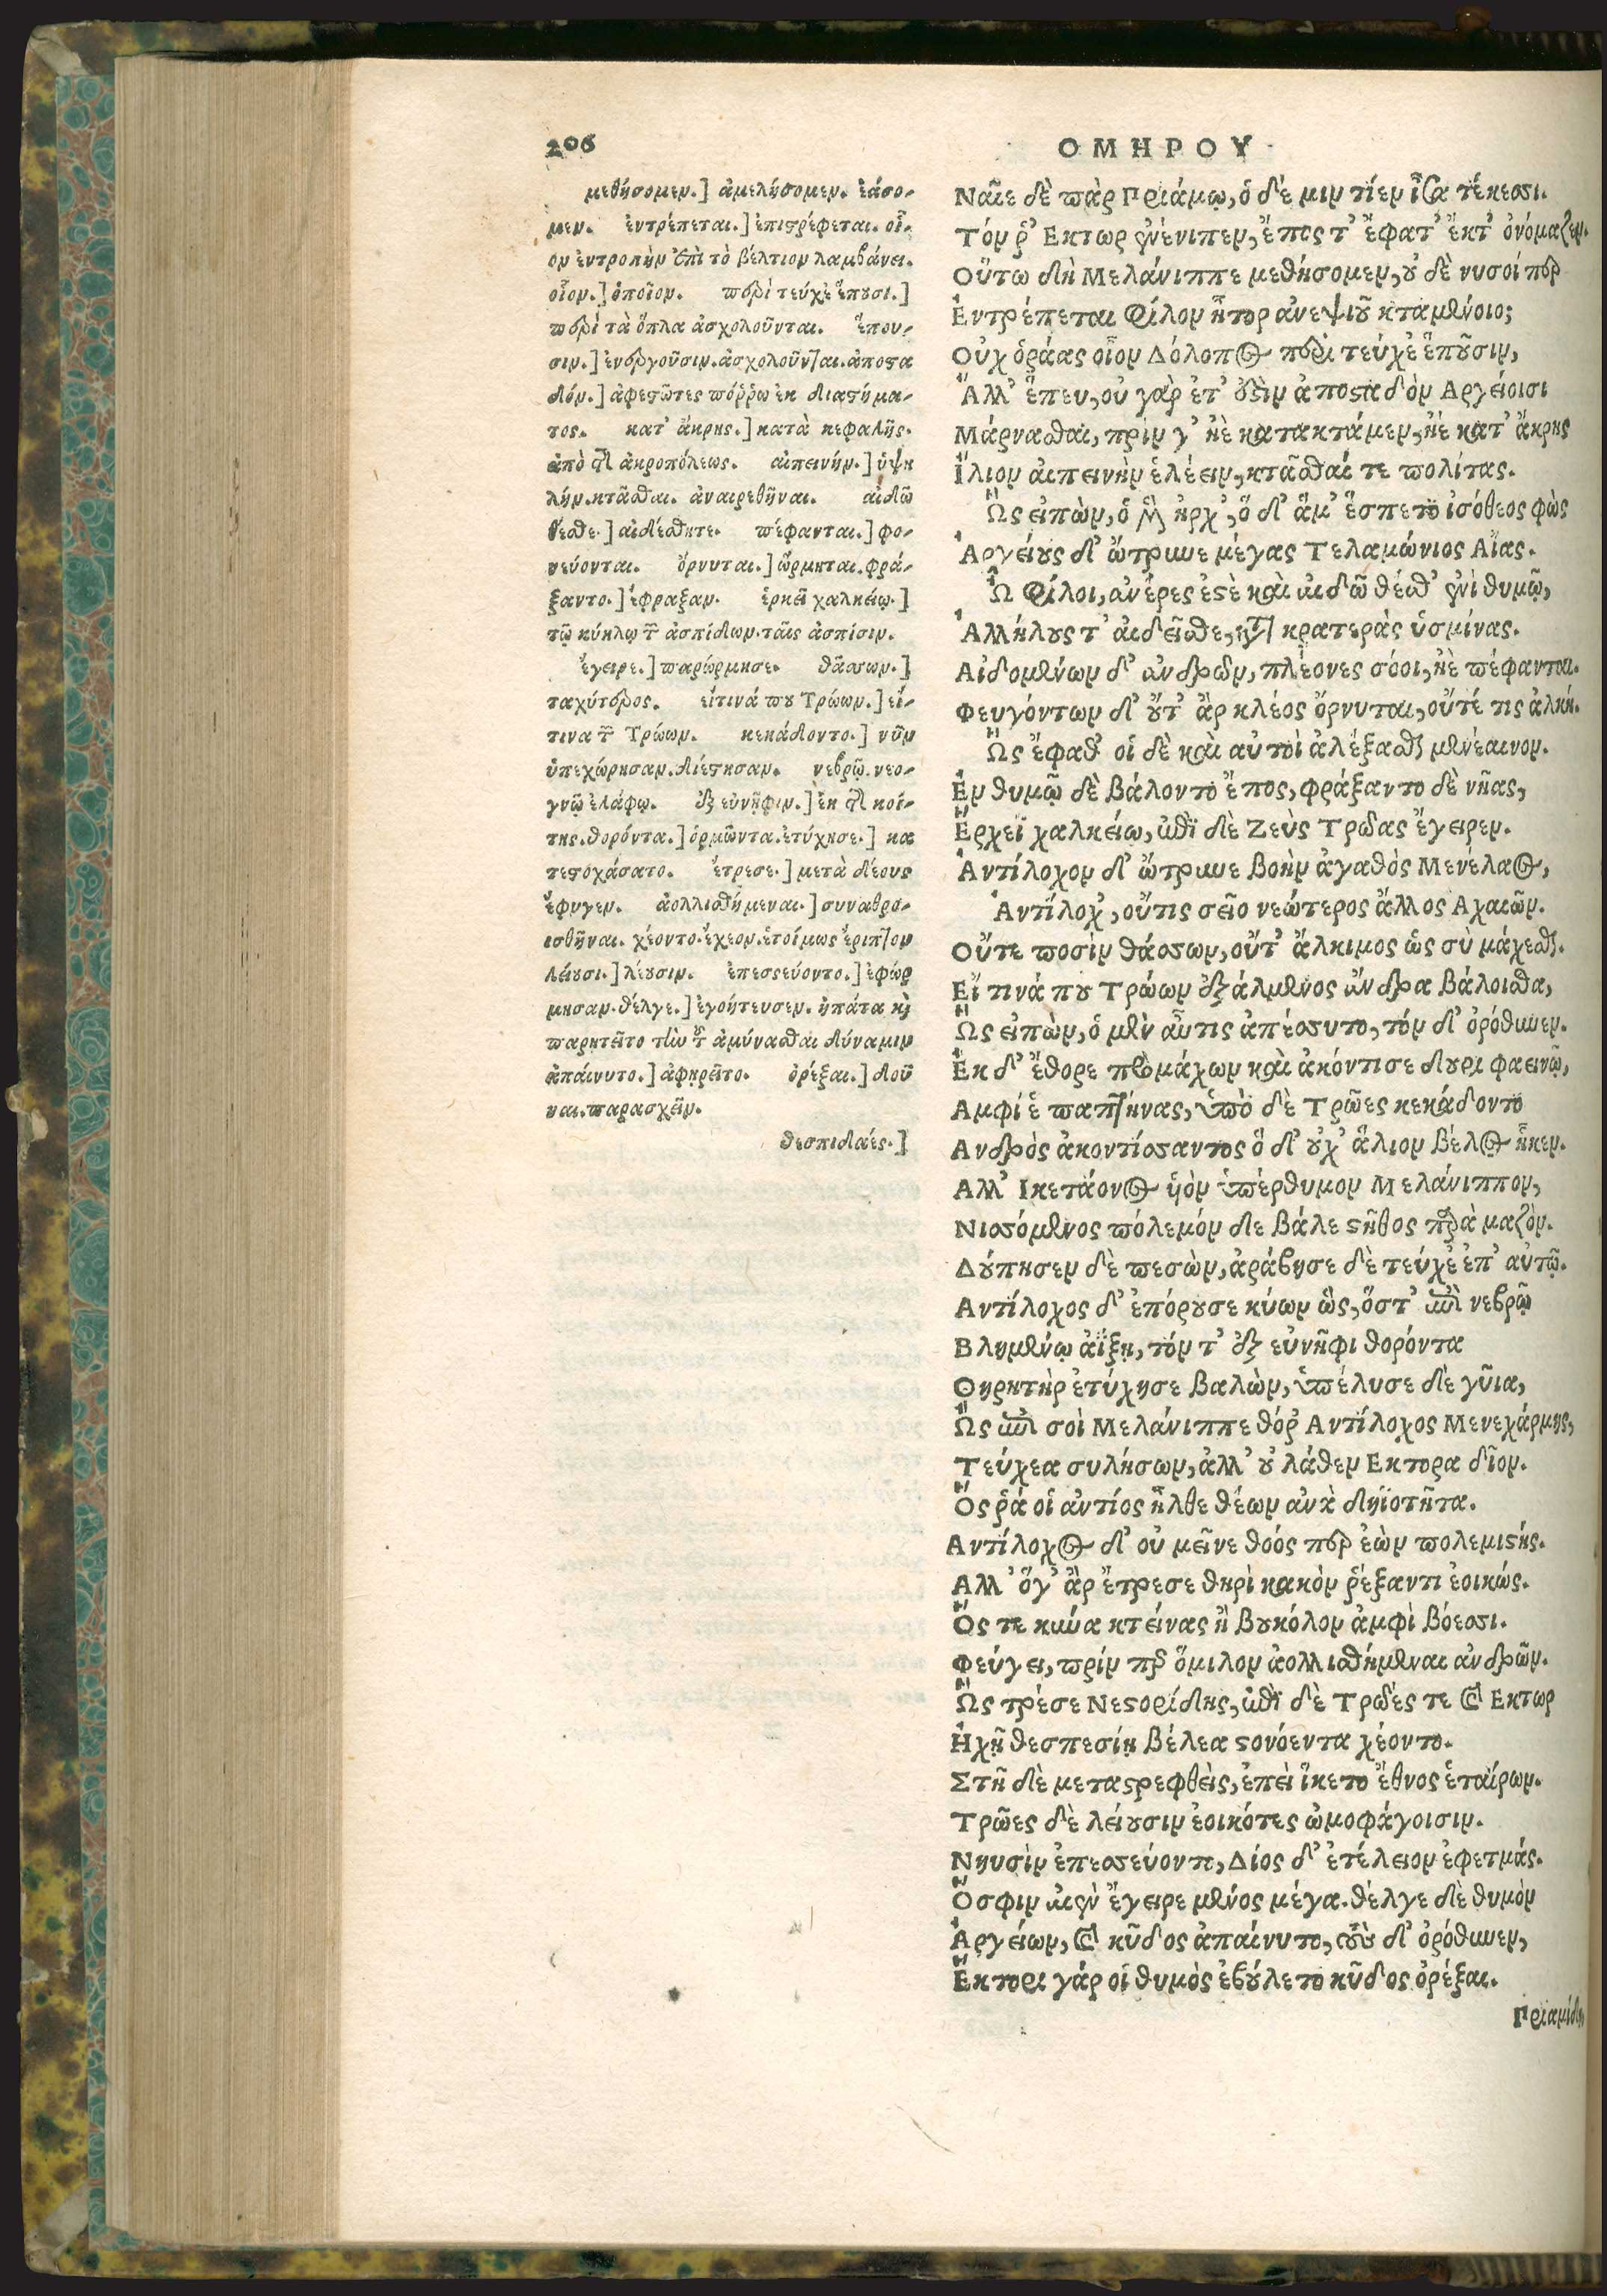 206
ΟΜΗΡΟΥ
μεθήσομεν.] ἀμελήσομεν. ἐάσο-
μεν. ἐντρέπεται.] ἐπιστρέφεται. οἷ-
ον ἐντροπὴν ἐπὶ τὸ βέλτιον λαμβάνει.
οἷον.] ὁποῖον. περὶ τεύχε' ἕπουσι.]
περὶ τὰ ὅπλα ἀσχολοῦνται. ἕπου-
σιν.] ἐνεργοῦσιν. ἀσχολοῦνται. ἀποστα
δόν.] ἀφεστῶτες πόῤῥω ἐκ διαστήμα-
τος. κατ' ἄκρης.] κατὰ κεφαλῆς.
ἀπὸ τῆς ἀκροπόλεως. αἰπεινήν.] ὑψη
λήν. κτᾶσθαι. ἀναιρεθῆναι. αἰδῶ
θέσθε.] αἰδέσθητε. πέφανται.] φο-
νεύονται. ὄρνυται.] ὥρμηται. φρά-
ξαντο.] ἔφραξαν. ἕρκεϊ χαλκείῳ.]
τῷ κύκλῳ τῶν ἀσπίδων. ταῖς ἀσπίσιν.
ἔγειρε.] παρώρμησε. θᾶσσων.]
ταχύτερος. εἴτινά που Τρώων.] εἴ-
τινα τῶν Τρώων. κεκάδοντο.] νῦν
ὑπεχώρησαν. διέστησαν. νεβρῷ. νεο-
γνῷ ἐλάφῳ. ἐξ εὐνῆφιν.] ἐκ τῆς κοί-
της. θορόντα.] ὁρμῶντα. ἐτύχησε.] κα
τεστοχάσατο. ἔτρεσε.] μετὰ δέους
ἔφυγεν. ἀολλισθήμεναι.] συναθροι-
σθῆναι. χέοντο. ἔχεον. ἑτοίμως ἔριπτον
λείουσι.] λέουσιν. ἐπεσσεύοντο.] ἐφώρ
μησαν. θέλγε.] ἐγοήτευσεν. ἠπάτα καὶ
παρῃτεῖτο τὴν τοῦ ἀμύνασθαι δύναμιν
ἀπαίνυτο.] ἀφῃρεῖτο. ὀρέξαι.] δοῦ
ναι. παρασχεῖν.
θεσπιδαές.]
Ναῖε δὲ πὰρ Πριάμῳ, ὁ δέ μιν τίεν ἶσα τέκεσσι.
Τόν ῥ' Εκτωρ ἐνένιπεν, ἔπος τ' ἔφατ' ἔκτ' ὀνόμαζεν.
Οὕτω δὴ Μελάνιππε μεθήσομεν, οὐ δὲ νυσοί περ
Ἐντρέπεται φίλον ἦτορ ἀνεψιοῦ κταμένοιο;
Οὐχ ὁράας οἷον Δόλοπος περὶ τεύχε' ἕπουσιν,
Ἀλλ' ἕπευ, οὐ γὰρ ἔτ' ἐστὶν ἀποσταδὸν Αργείοισι
Μάρνασθαι, πρίν γ' ἠὲ κατακτάμεν, ἠὲ κατ' ἄκρης
Ἴλιον αἰπεινὴν ἑλέειν, κτᾶσθαί τε πολίτας.
Ὣς εἰπὼν, ὁ μὲν ἦρχ', ὅ δ' ἅμ' ἕσπετο ἰσόθεος φὼς
Ἀργείους δ' ὤτρυνε μέγας Τελαμώνιος Αἴας.
Ὦ φίλοι, ἀνέρες ἐστὲ καὶ αἰδῶ θέσθ' ἐνὶ θυμῷ,
Ἀλλήλους τ' αἰδεῖσθε, κατὰ κρατερὰς ὑσμίνας.
Αἰδομένων δ' ἀνδρῶν, πλέονες σόοι, ἠὲ πέφανται.
Φευγόντων δ' οὔτ' ἂρ κλέος ὄρνυται, οὔτέ τις ἀλκή.
Ὣς ἔφαθ' οἱ δὲ καὶ αὐτοὶ ἀλέξασθαι μενέαινον.
Ἐν θυμῷ δὲ βάλοντο ἔπος, φράξαντο δὲ νῆας,
Ἕρχεϊ χαλκείω, ἐπὶ δὲ Ζεὺς Τρῶας ἔγειρεν.
Ἀντίλοχον δ' ὤτρυνε βοὴν ἀγαθὸς Μενέλαος,
Ἀντίλοχ', οὔτις σεῖο νεώτερος ἄλλος Αχαιῶν.
Οὔτε ποσὶν θάσσων, οὔτ' ἄλκιμος ὡς σὺ μάχεσθαι.
Εἴ τινά που Τρώων ἐξάλμενος ἄνδρα βάλοισθα,
Ὣς εἰπὼν, ὁ μὲν αὖτις ἀπέσσυτο, τόν δ' ὀρόθυνεν.
Ἐκ δ' ἔθορε προμάχων καὶ ἀκόντισε δουρι φαεινῷ,
Αμφί ἑ παπτήνας, ὑπὸ δὲ Τρῶες κεκάδοντο
Ανδρὸς ἀκοντίσσαντος ὅ δ' οὐχ' ἅλιον βέλος ἧκεν.
Αλλ' Ικετάονος ὑὸν ὑπέρθυμον Μελάνιππον,
Νισσόμενος πόλεμόν δε βάλε στῆθος παρὰ μαζὸν.
Δούπησεν δὲ πεσὼν, ἀράβησε δὲ τεύχε' ἐπ' αὐτῷ.
Αντίλοχος δ' ἐπόρουσε κύων ὣς, ὅστ' ἐπὶ νεβρῷ
Βλημένῳ ἀΐξῃ, τόν τ' ἐξ εὐνῆφι θορόντα
Θηρητὴρ ἐτύχησε βαλὼν, ὑπέλυσε δὲ γυῖα,
Ὣς ἐπὶ σοὶ Μελάνιππε θόρ' Αντίλοχος Μενεχάρμης,
Τεύχεα συλήσων, ἀλλ' οὐ λάθεν Εκτορα δῖον.
Ὅς ῥά οἱ ἀντίος ἦλθε θέων ἀνὰ δηϊοτῆτα.
Αντίλοχος δ' οὐ μεῖνε θοός περ ἐὼν πολεμιστής.
Αλλ' ὅγ' ἂρ ἔτρεσε θηρὶ κακὸν ῥέξαντι ἐοικώς.
Ὅς τε κύνα κτείνας ἢ βουκόλον ἀμφὶ βόεσσι.
Φεύγει, πρίν περ ὅμιλον ἀολλισθήμεναι ἀνδρῶν.
Ὣς τρέσε Νεστορίδης, ἐπὶ δὲ Τρῶές τε καὶ Εκτωρ
Ἠχῇ θεσπεσίῃ βέλεα στονόεντα χέοντο.
Στῆ δὲ μεταστρεφθεὶς, ἐπεὶ ἵκετο ἔθνος ἑταίρων.
Τρῶες δὲ λείουσιν ἐοικότες ὠμοφάγοισιν.
Νηυσὶν ἐπεσσεύοντο, Δίος δ' ἐτέλειον ἐφετμάς.
Ὅσφιν αἰὲν ἔγειρε μένος μέγα. θέλγε δὲ θυμὸν
Ἀργείων, καὶ κῦδος ἀπαίνυτο, τοὺς δ' ὀρόθυνεν,
Ἕκτορι γάρ οἱ θυμὸς ἐβούλετο κῦδος ὀρέξαι.
Πριαμίδη,